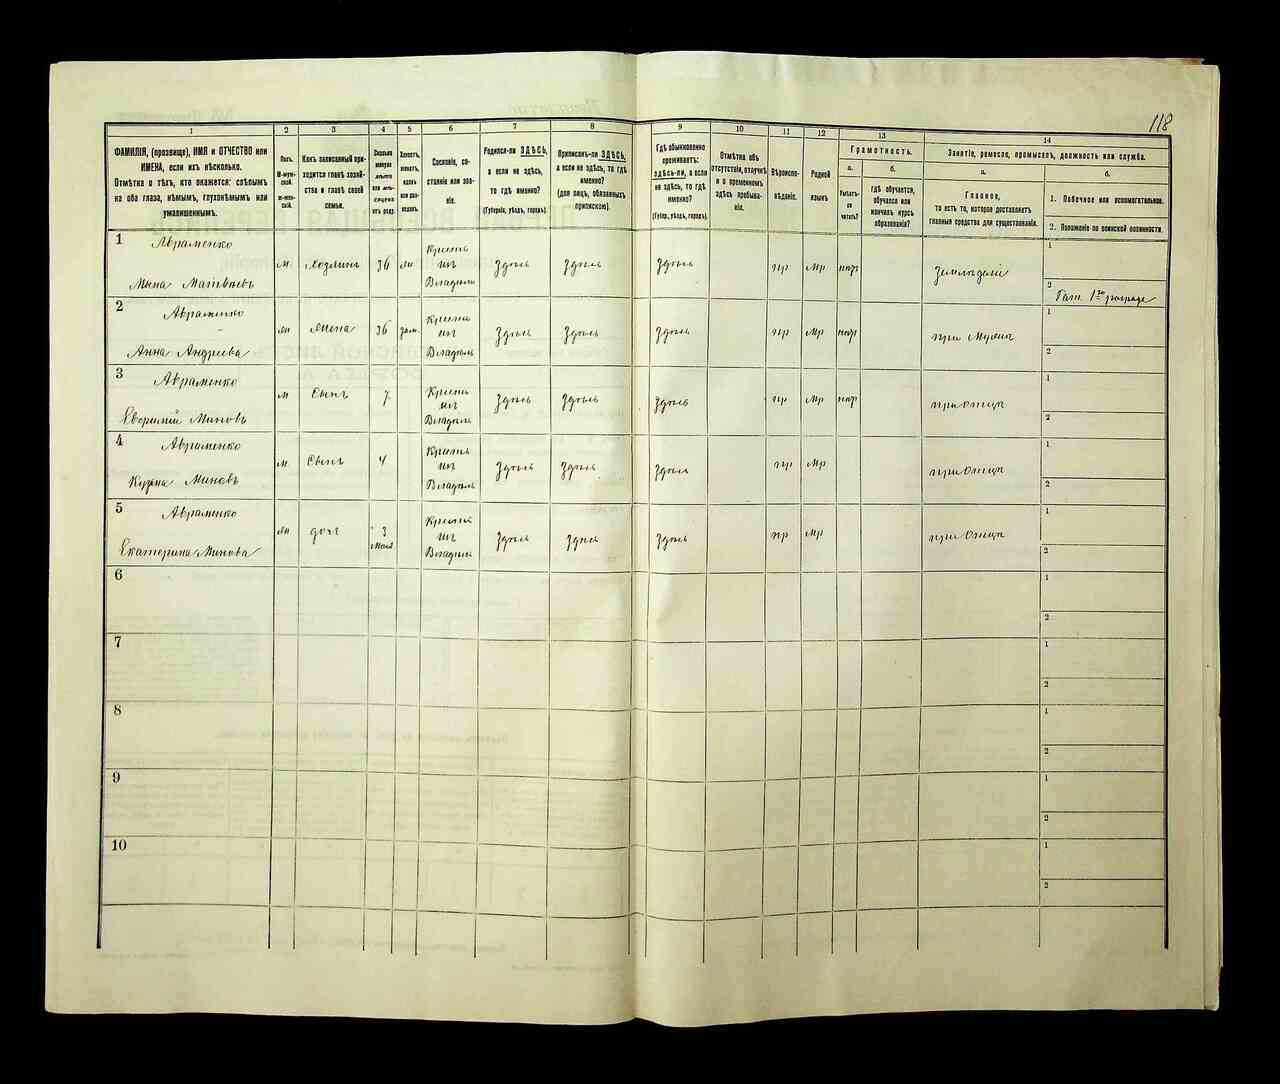 118
1 2 3 4 5 6 7 8 9 10 11 12 13 14
ФАМИЛІЯ, (прозвище), ИМЯ и ОТЧЕСТВО или
ИМЕНА, если ихъ нѣсколько.
Отмѣтка о тѣхъ, кто окажется: слѣпымъ
на оба глаза, нѣмымъ, глухонѣмымъ или
умалишеннымъ.
Полъ.
М-муж-
ской.
Ж-жен-
скій.
Какъ записанный при-
ходится главѣ хозяй-
ства и главѣ своей
семьи.
Сколько
минуло
лѣтъ
или мѣ-
сяцевъ
отъ роду.
Холостъ,
женатъ,
вдовъ
или раз-
веденъ.
Сословіе, со-
стояніе или зва-
ніе.
Родился-ли ЗДѢСЬ,
а если не здѣсь,
то гдѣ именно?
(Губернія, уѣздъ, городъ).
Приписанъ-ли ЗДѢСЬ,
а если не здѣсь, то гдѣ
именно?
(для лицъ, обязанныхъ
припискою).
Гдѣ обыкновенно
проживаетъ:
здѣсь-ли, а если
не здѣсь, то гдѣ
именно?
(Губерн., уѣздъ, городъ).
Отмѣтка объ
отсутствіи, отлучкѣ
и о временномъ
здѣсь пребыва-
ніи.
Вѣроиспо-
вѣданіе.
Родной
языкъ
Грамотность.
а.
Умѣетъ-
ли
читать?
б.
гдѣ обучается,
обучался или
кончилъ курсъ
образованія?
Занятіе, ремесло, промыселъ, должность или служба.
а.
Главное,
то есть то, которое доставляетъ
главныя средства для существованія.
б.
1. Побочное или вспомогательное.
2. Положеніе по воинской повинности.
1 Авраменко
Мина Матвѣевъ
м Хозяинъ 36 жн Здѣсь Здѣсь Здѣсь пр Мр нѣт Земледѣліе
1
2
2 Авраменко
Анна Андреева
жн Жена 36 зам. Здѣсь Здѣсь Здѣсь пр Мр нѣт при Мужѣ
1
2
3 Авраменко
Миновъ
м Сынъ 7 Здѣсь Здѣсь Здѣсь пр Мр нѣт при Отцѣ
1
2
4 Авраменко
Кузма Миновъ
м Сынъ 4 Здѣсь Здѣсь Здѣсь пр Мр при Отцѣ
1
2
5 Авраменко
Екатерина Минова
жн доч 3 Здѣсь Здѣсь Здѣсь пр Мр при Отцѣ
1
2
6
1
2
7
1
2
8
1
2
9
1
2
10
1
2